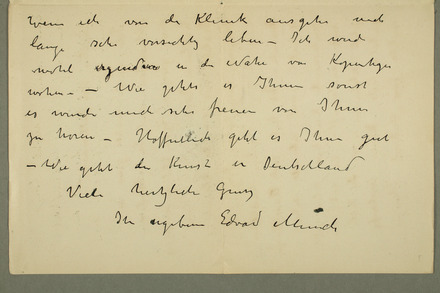 wenn ich von der Klinik ausgehe und
lange sehr vorsichtig leben – Ich werde
wohl irgendwo in der Nähe von Kopenhagen
wohnen – – Wie gehts es Ihnen sonst
es würde mich sehr freuen von Ihnen
zu hören – Hoffentlich geht es Ihnen gut
– Wie geht die Kunst in Deutschland
Viele herzliche Grüss
Ihr ergebener Edvard Munch